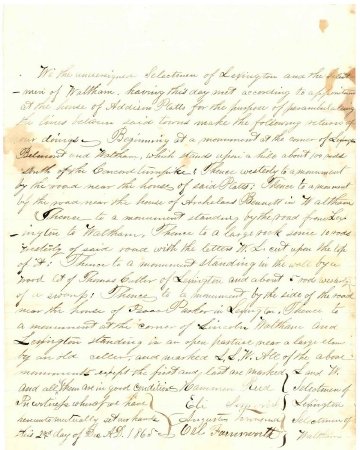 We the undersigned Selectmen of Lexington and the Select
men of Waltham, having this day met according to appointment
at the house of Addison Platts for the purpose of perambulating
the lines between said towns make the following returns of
our doings. Beginning at a monument at the corner of Lexington
Belmont and Waltham, which stands upon a hill about 100 rods
South of the Concord turnpike; Thence westerly to a monument
by the road near the house of said Platts; Thence to a monument
by the road near the house of Archelaus Bennett in Waltham
Thence to a monument standing by the road from Lex-
ington to Waltham; Thence to a large rock some 10 rods
Westerly of said road with the letters W. L. cut upon the top
of it; Thence to a monument standing in the wall by a
wood lot of Thomas Cutler of Lexington and about rods
of a swamp; Thence to a monument, by the side of the road
near the house of Isaac Parker in Lexington; Thence to
a monument at the corner of Lincoln Waltham and
Lexington standing in an open pasture near a large elm
by an old cellar, and marked L.L.W. All of the above
monuments except the first and last are marked L and W.
and all of them are in good condition
In witness whereof we have
hereunto mutually set our hands
this 2nd day of Dec A.D. 1865
Hammon Reed
Eli
Augustus
Selectmen of
Lexington
Selectmen of
Waltham